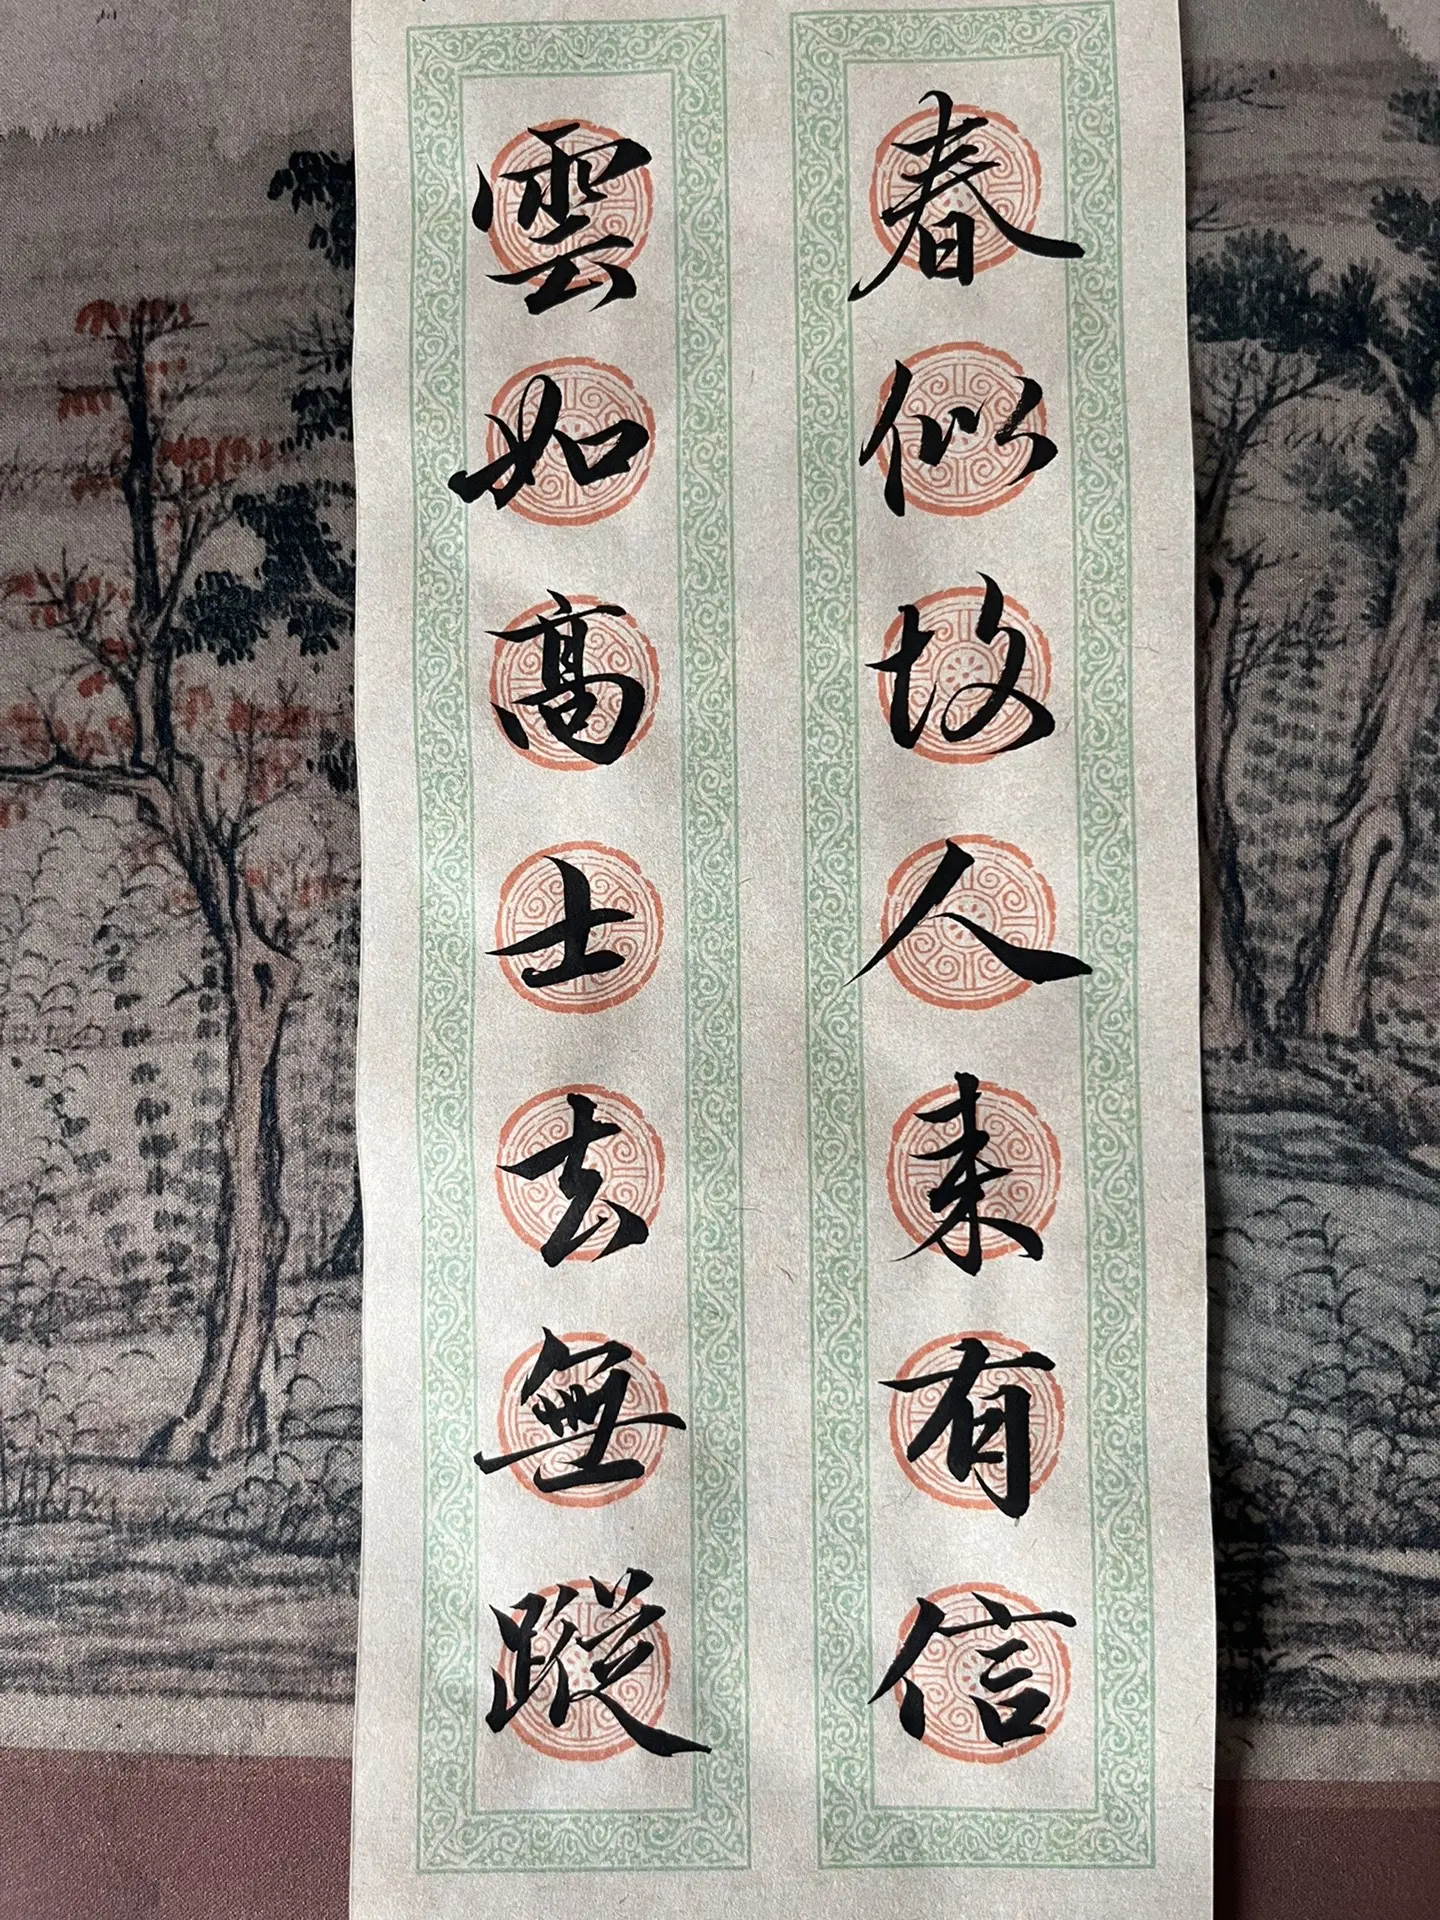 春似故人来有信
雲如高士去無蹤